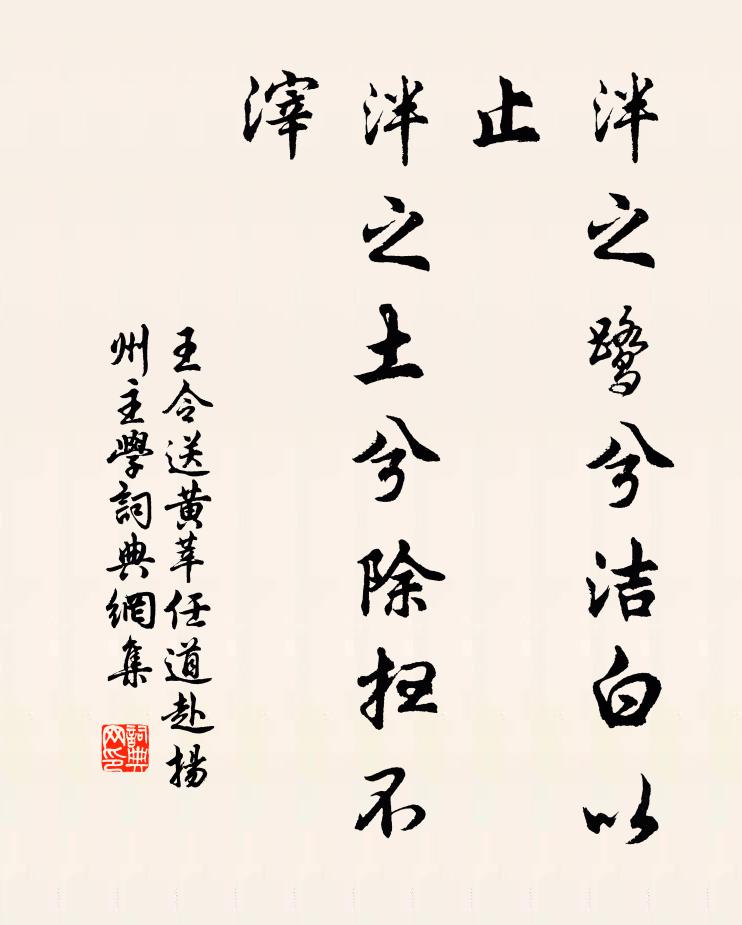 泮之鹭兮洁白以
止
泮之土兮除扫不
滓
王令送黄莘任道赴揚
州主學詞典網集
詞典
网印